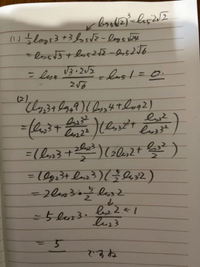 log₅(√2)³ = log₅2√2
(1) ½log₅3 + 3log₅√2 - log₅√24
= log₅√3 + log₅2√2 - log₅2√6
= log₅ √3・2√2 / 2√6 = log₅1 = 0
(2)
(log₂3 + log₄9)(log₃4 + log₉2)
= (log₂3 + log₂3² / log₂2²)(log₃2² + log₃2 / log₃3²)
= (log₂3 + 2log₂3 / 2)(2log₃2 + log₃2 / 2)
= (log₂3 + log₂3)(5/2 log₃2)
= 5log₂3・log₂2 / log₂3
= 5
ですね